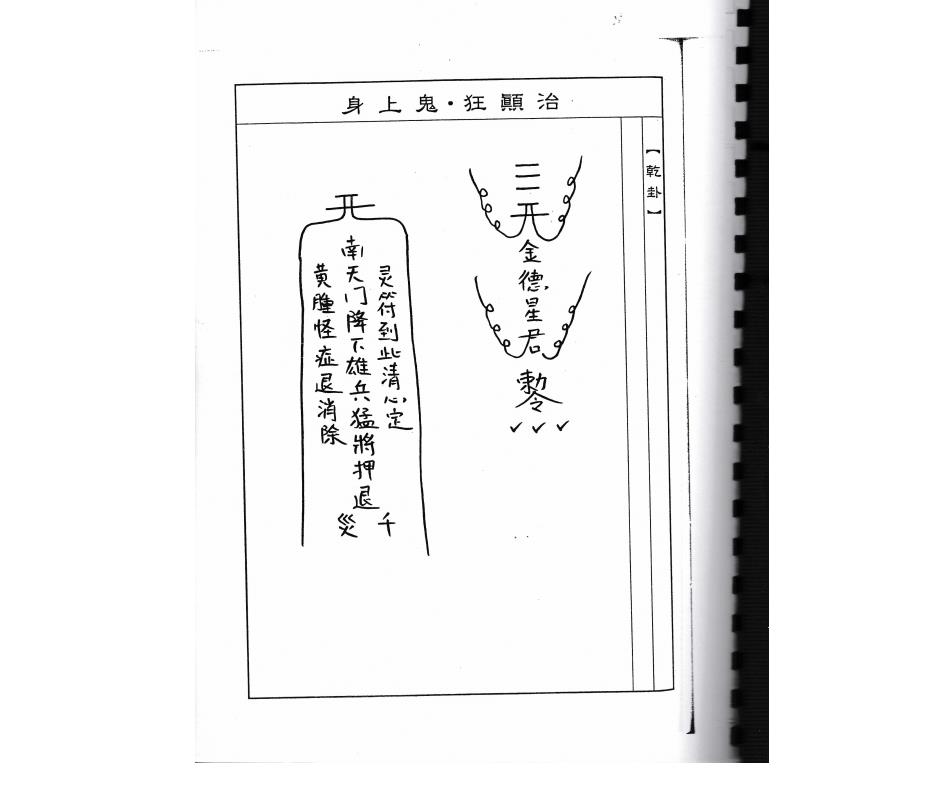 治顚狂·鬼上身
【乾卦】
三
开
金德星君
勅令
开
灵符到此清心定
南天门降下雄兵猛將押退
千災
黄腫怪症退消除